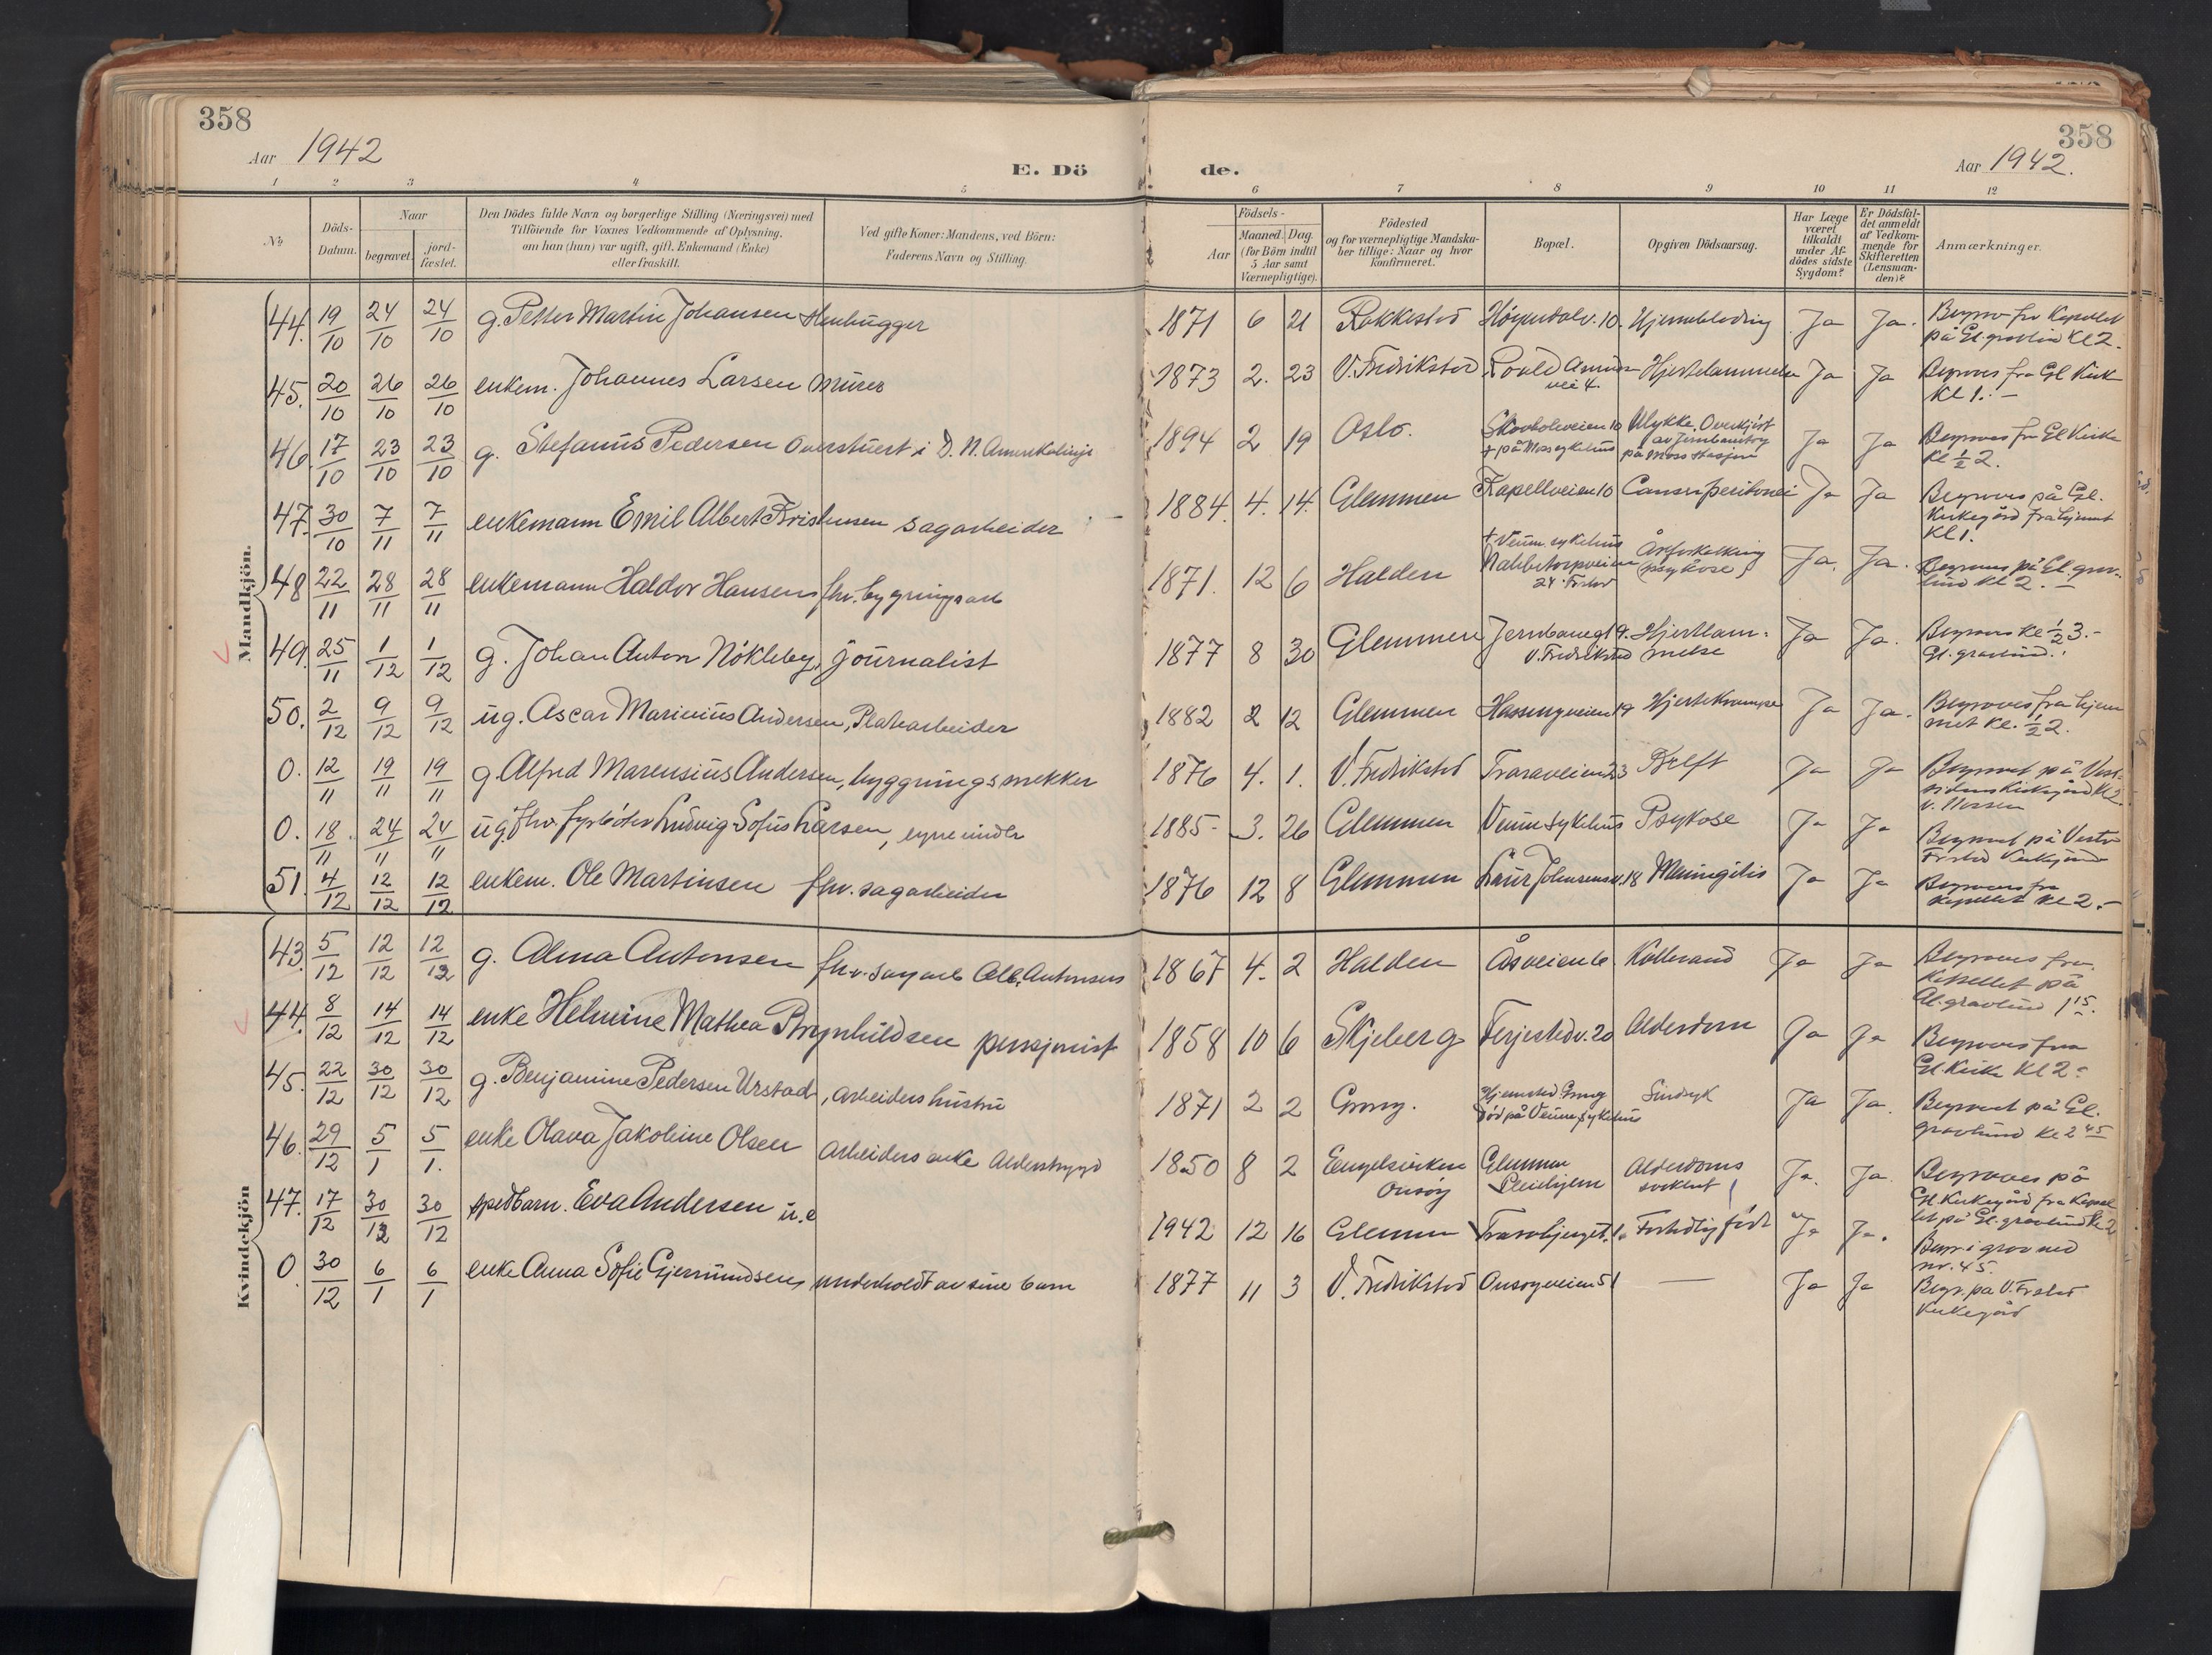 358
Aar 1942
E. Dö
de.
358
Aar 1942.
1 2 3 4 5 6 7 8 9 10 11 12
№
Döds-Datum.
Naar
begravet.
jord-fæstet.
Den Dödes fulde Navn og borgerlige Stilling (Næringsvei) med
Tilföiende for Voxnes Vedkommende af Oplysning,
om han (hun) var ugift, gift, Enkemand (Enke)
eller fraskilt.
Ved gifte Koner: Mandens, ved Börn:
Faderens Navn og Stilling.
Födsels-
Aar
Maaned. Dag.
(for Börn indtil
5 Aar samt
Værnepligtige).
Födested
og for værnepligtige Mandska-
ber tillige: Naar og hvor
konfirmeret.
Bopæl.
Opgiven Dödsaarsag.
Har Læge
været
tilkaldt
under Af-
dödes sidste
Sygdom?
Er Dödsfal-
det anmeldt
af Vedkom-
mende for
Skifteretten
(Lensman-
den)?
Anmærkninger.
Mandkjön.
44. 19/10 24/10 24/10 g. Petter Martin Johansen Stenhugger 1871 6 21 Rakkestad 10. Hjerneblødning Ja Ja. på Gl. gravlund Kl 2.
45. 20/10 26/10 26/10 enkem. Johannes Larsen murer 1873 2. 23 V. Fredrikstad Roald vei 4. Ja Ja Begraves fra Gl Kirke Kl 1. –
46. 17/10 23/10 23/10 g. Stefanus Pedersen Overstuert i D. N. Amerikalinje 1894 2 19 Oslo. 10 + på Moss sykehus Ulykke, Overkjørt av Jernbanetog på Moss Stasjon Ja Ja Begraves fra Gl Kirke Kl ½ 2.
47. 30/10 7/11 7/11 enkemann Emil Albert Kristensen sagarbeider 1884. 4. 14. Glemmen Kapellveien 10 Cancer peritonei Ja Ja Begraves på Gl. Kirkegård fra hjemmet Kl 1.
48 22/11 28/11 28/11 enkemann Haldor Hansen fhv. bygningsarb 1871. 12 6 Halden + Veum sykehus 24 Frstad Åreforkalkning (psykose) Ja. Ja. Begraves på Gl. gravlund Kl 2. –
49. 25/11 1/12 1/12 g. Johan Anton Nökleby, journalist 1877 8 30 Glemmen Jernbanegt 9. V. Fredrikstad Hjertlammelse Ja Ja. Begraves Kl ½ 3. – Gl. gravlund.
50. 2/12 9/12 9/12 ug. Oscar Marinius Andersen, Platearbeider 1882 2 12 Glemmen Hassingveien 19 Hjertekrampe Ja Ja. Begraves fra hjemmet Kl. ½ 2.
0. 12/11 19/11 19/11 g. Alfred Marensius Andersen, byggningssnekker 1876 4. 1. V. Fredrikstad Traraveien 23 Kreft Ja Ja Begravet på Vestsidens Kirkegård Kl 2.
0. 18/11 24/11 24/11 ug. fhv. fyrbøter Ludvig Sofus Larsen, 1885 – 3. 26 Glemmen Veum sykehus Psykose Ja Ja Begravet på Vestre Frstad Kirkegård
51. 4/12 12/12 12/12 enkem. Ole Martinsen fhv. sagarbeider 1876 12 8 Glemmen 18 Meningitis Ja Ja Begraves fra kapellet Kl 2. –
Kvindekjön
43. 5/12 12/12 12/12 g. Alma Antonsen fhv. sagarb Alb. Antonsens 1867 4. 2 Halden Åsveien 6 Koldbrand Ja Ja Begraves fra Kapellet på Gl. gravlund 1¹⁵.
44. 8/12 14/12 14/12 enke Helmine Mathea Brynhildsen pensjonist 1858 10 6 Skjeberg Ferjestedv. 20 Alderdom Ja Ja Begraves fra Gl. Kirke Kl 2.
45. 22/12 30/12 30/12 g. Benjamine Pedersen Urstad, arbeiders hustru 1871 2 2 Grong. Hjemsted Grong Död på Veum sykehus Sindsyk Ja Ja. Begravet på Gl. gravlund Kl 2⁴⁵
46. 29/12 5/1 5/1. enke Olava Jakobine Olsen arbeiders enke Alderstrygd 1850 8 2 Engelsviken Onsøy Glemmen Pleiehjem Alderdoms svekket Ja. Ja. Begraves på Gl. Kirkegård fra Kapellet på Gl. gravlund Kl 2
47. 17/12 30/12 30/12 spedbarn. Eva Andersen u.e 1942 12 16 Glemmen Trarabjerget. 1. Fortidlig født Ja Ja. Begr. i grav med nr. 45.
0 30/12 6/1 6/1 enke Anna Sofie Gjermundsen, underholdt av sine barn 1877 11 3 V. Fredrikstad Onsøyveien 51 — Ja Ja Begr. på V. Frstad Kirkegård